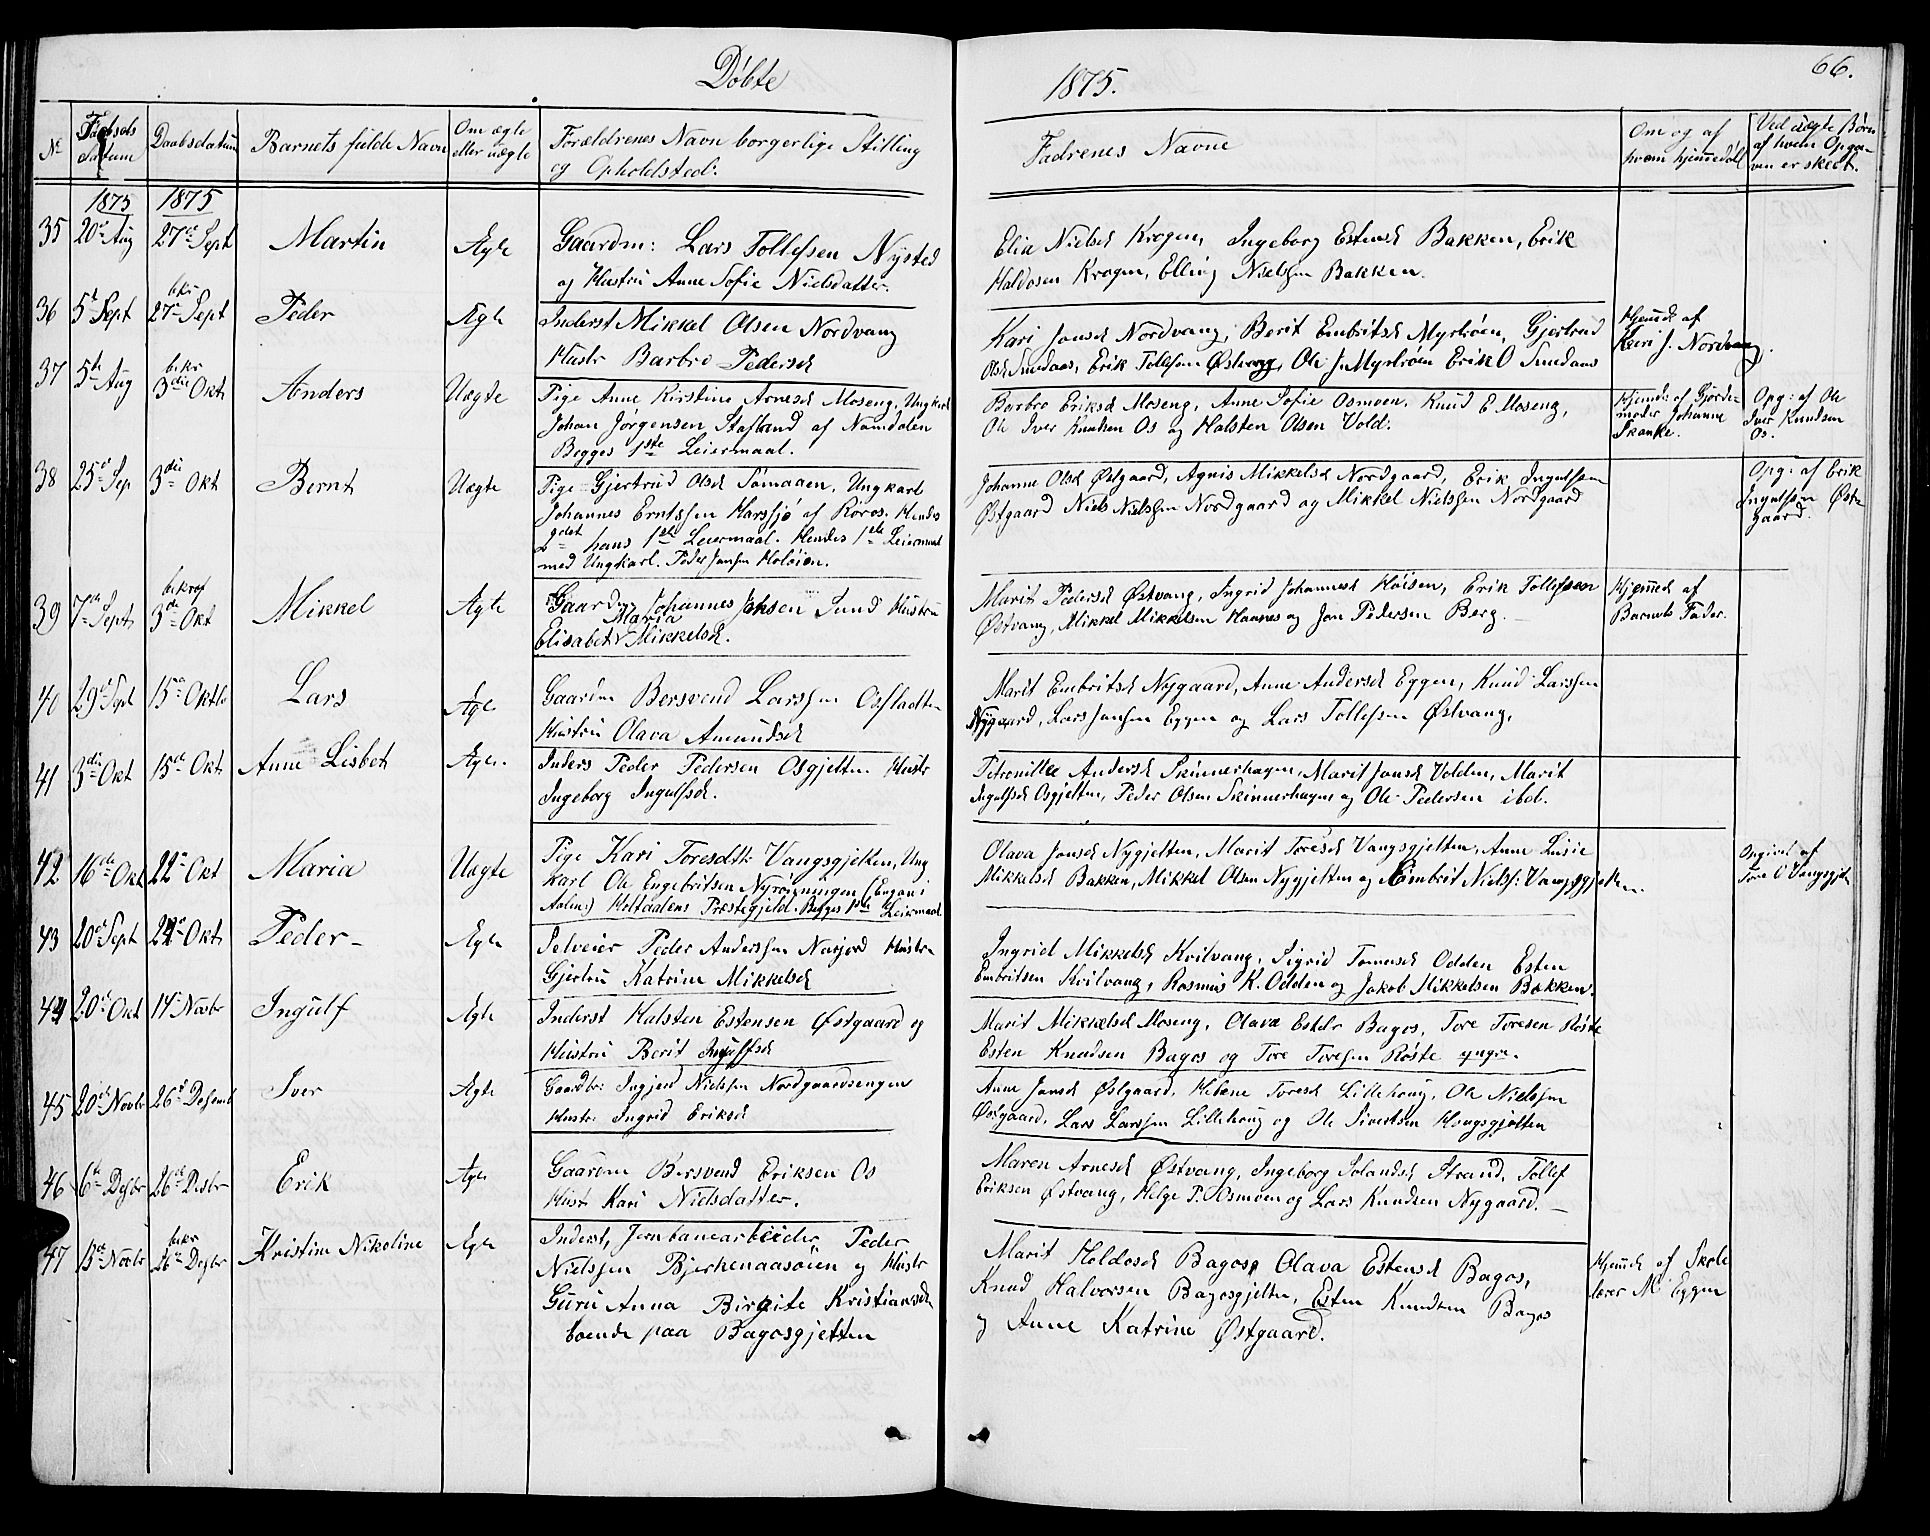 Døbte
1875.
66.
No
Fødsels Datum
Daabsdatum
Barnets fulde Navn
Om ægte eller uægte
Forældrenes Navn borgerlige Stilling og Opholdsted.
Fadrenes Navne
Om og af hvem hjemmedøbt
Ved uægte Børn af hvem Opgaven er skeet.
1875 1875
35 20de Aug 27de Sept Martin Ægte
Gaardm: Lars Tollefsen Nysted
og Hustru Anne Sofie Nielsdatter.
Elia Nielsd Krogen, Ingeborg Estensd Bakken, Erik
Haldosen Krogen, Elling Nielssen Bakken.
36 5te Sept bekr 27de Sept Peder Ægte
Inderst Mikkel Olsen Nordvang
Hustr Barbro Pedersd
Kari Jonsd Nordvang, Berit Embritsd Myrmoen, Gjertrud
Olsd Sundaas, Erik Tollefsen Østvang, Ole J. Myrmoen Erik O Sundaas
Hjemdb af
Kari J. Nordvang.
37 5te Aug bekr 3die Okt Anders Uægte
Pige Anne Kirstine Arnesd Moseng, Ungkarl
Johan Jørgensen Stafland af Namdalen
Begges 1ste Leiermaal.
Barbro Eriksd Moseng, Anne Sofie Osmoen, Knud E Moseng,
Ole Iver Knudsen Os og Halsten Olsen Vold.
Hjemdb: af Gjordemoder Johanne
Skanke.
Opg: af Ole
Iver Knudsen
Os.
38 25de Sep 3die Okt Bernt Uægte
Pige Gjertrud Olsd Sømaaen, Ungkarl
Johannes Erntssen Harssjø af Røros. Hendes
2det hans 1ste Leiermaal. Hendes 1ste Leiermaal
med Ungkarl. Peder Jonsen Holøien.
Johanne Olsd Østgaard, Agnis Mikkelsd Nordgaard, Erik Ingulfsen
Østgaard Niels Nielssen Nordgaard og Mikkel Nielssen Nordgaard
Opg: af Erik
Ingulfsen Østgaard.
39 7de Sept bekræf 3die Okt Mikkel Ægte
Gaardm Johannes Johsen Sund Hustru
Elisabet Maria Mikkelsd.
Marit Pedersd Østvang, Ingrid Johannesd Høisen, Erik Tollefsen
Østvang, Mikkel Mikkelsen Hannes og Jon Pedersen Berg.
Hjemmed af
Barnets Fader.
40 29de Sept 15de Oktb Lars Ægte
Gaardm Bersvend Larssen Osfladten
Hustru Olava Amundsd
Marit Embritsd Nygaard, Anne Andersd Eggen, Knud Larssen
Nygaard, Lars Jonsen Eggen og Lars Tollefsen Østvang,
41 3die Okt 15de Okt Anne Lisbet Ægte.
Inders Peder Pedersen Osgjelten Hustr
Ingeborg Ingulfsd.
Petronille Andersd Skinnerhagen, Marit Jonsd Volden, Marit
Ingulfsd Osgjelten, Peder Olsen Skinnerhagen og Ole Pedersen ibd.
42 16de Okt 22de Okt Maria Uægte
Pige Kari Toresdtt: Vangsgjelten, Ungkarl Ole Engebritsen Nyrønningen (Engan i
Aalen) Holtaalens Præstegjeld. Begges 1ste Leiermaal
Olava Jonsd Nygjelten, Marit Toresd Vangsgjelten, Anne Lusie
Mikkelsd Bakken, Mikkel Olsen Nygjelten og Embrit Niels: Vangsgjelten.
Opgivet af
Tore O Vangsgjelt
43 20de Sept 24de Okt Peder Ægte
Selveier Peder Anderssen Narjord Hustru
Gjertru Katrine Mikkelsd
Ingrid Mikkelsd Kvilvang, Sigrid Tomesd Odden Esten
Embritsen Kvilvang, Rasmus K. Odden og Jakob Mikkelsen Bakken.
44 20de Okt 14de Novbr Ingulf Ægte
Inderst Halsten Estensen Østgaard og
Hustru Berit Ingulfsd
Marit Mikkelsd Moseng, Olava Estdr Bagos, Tore Toresen Røste
Esten Knudsen Bagos og Tore Toresen Røste yngre.
45 20de Novbr 26de Desemb Iver Ægte
Gaardbr: Ingjend Nielssen Nordgaardsengen
Hustr: Ingrid Eriksd
Anne Jonsd Østgaard, Helene Toresd Lillehoug, Ole Nielssen
Østgaard, Lars Larssen Lillehoug og Ole Sivertsen Hougsgjelten
46 6te Desbr 26de Desbr Erik Ægte
Gaardm Bersvend Eriksen Os
Hustr Kari Nielsdatter.
Maren Arnesd Østvang, Ingeborg Solandsd Strand, Tollef
Eriksen Østvang, Helge P. Osmoen og Lars Knudsen Nygaard.
47 13de Novbr bekr 26de Desbr Kristine Nikoline Ægte
Inderst, Jernbanearbeider Peder
Nielssen Bjerkenaasøien og Hustr
Guru Anna Birgite Kristiansd
boende paa Bagosgjelten
Marit Holdosd Bagos, Olava Estensd Bagos,
Knud Halvorsen Bagosgjelten, Esten Knudsen Bagos
og Anne Katrine Østgaard.
Hjemdb af Skolelærer M Eggen